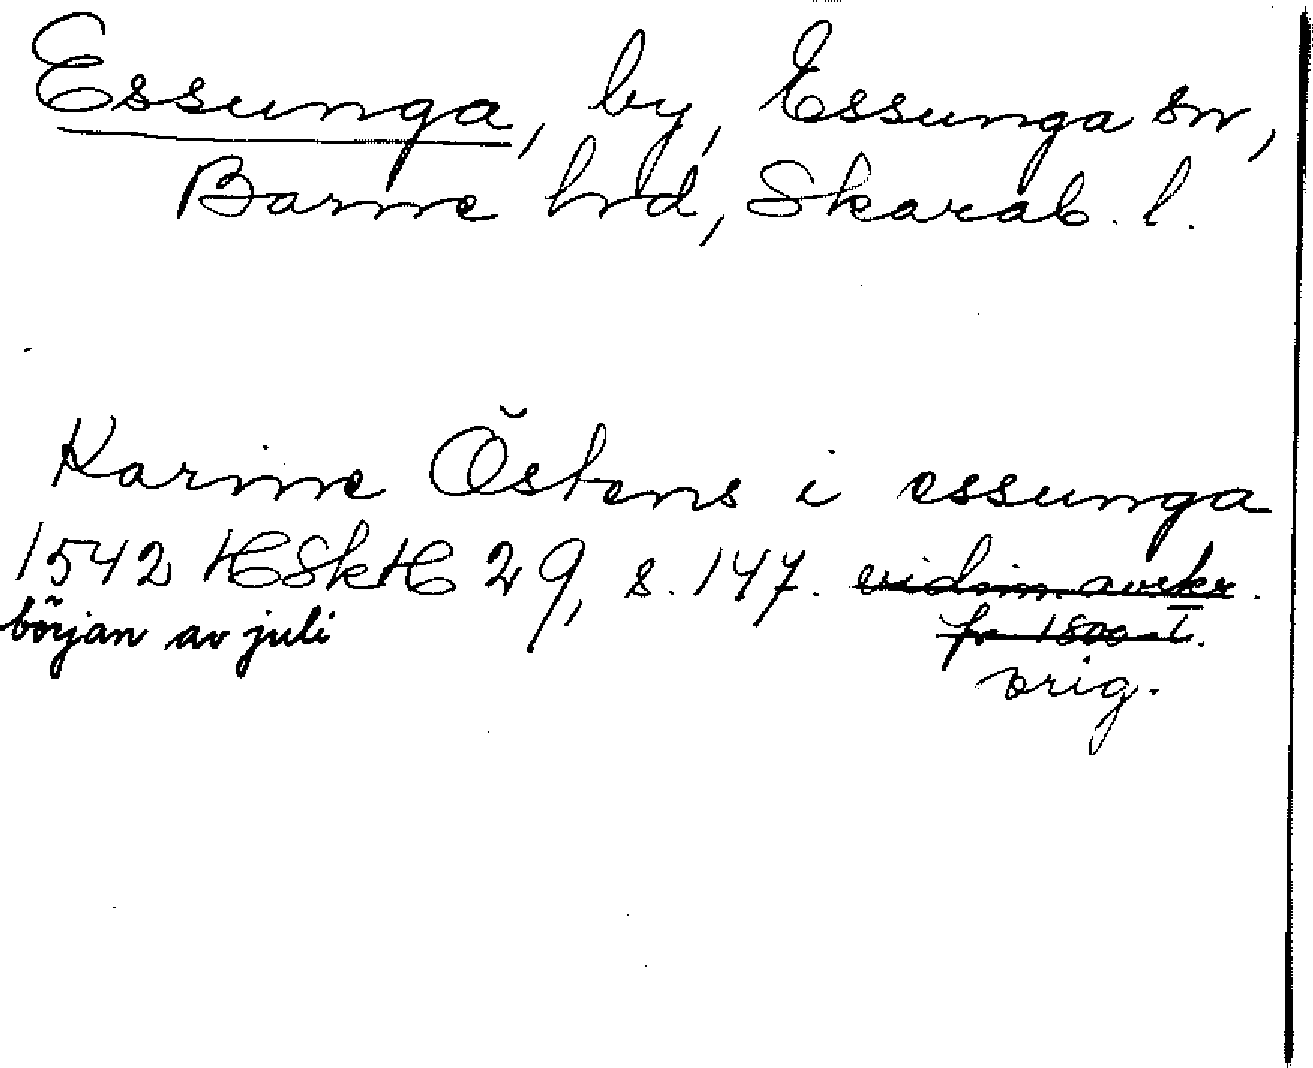 Essunga, by, Essunga sn,
Barne hrd, Skarab. l.
Karine Östens i essunga
1542 HSkH 29, s. 147. vidim. avskr.
början av juli fr 1800-t.
orig.